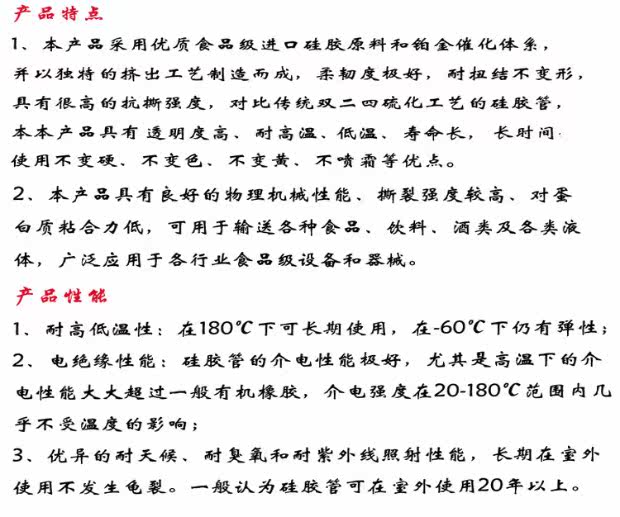 产品特点
1、本产品采用优质食品级进口硅胶原料和铂金催化体系，
并以独特的挤出工艺制造而成，柔韧度极好，耐扭结不变形，
具有很高的抗撕强度，对比传统双二四硫化工艺的硅胶管，
本本产品具有透明度高、耐高温、低温、寿命长，长时间
使用不变硬、不变色、不变黄、不喷霜等优点。
2、本产品具有良好的物理机械性能、撕裂强度较高、对蛋
白质粘合力低，可用于输送各种食品、饮料、酒类及各类液
体，广泛应用于各行业食品级设备和器械。
产品性能
1、耐高低温性：在180℃下可长期使用，在-60℃下仍有弹性；
2、电绝缘性能：硅胶管的介电性能极好，尤其是高温下的介
电性能大大超过一般有机橡胶，介电强度在20-180℃范围内几
乎不受温度的影响；
3、优异的耐天候、耐臭氧和耐紫外线照射性能，长期在室外
使用不发生龟裂。一般认为硅胶管可在室外使用20年以上。